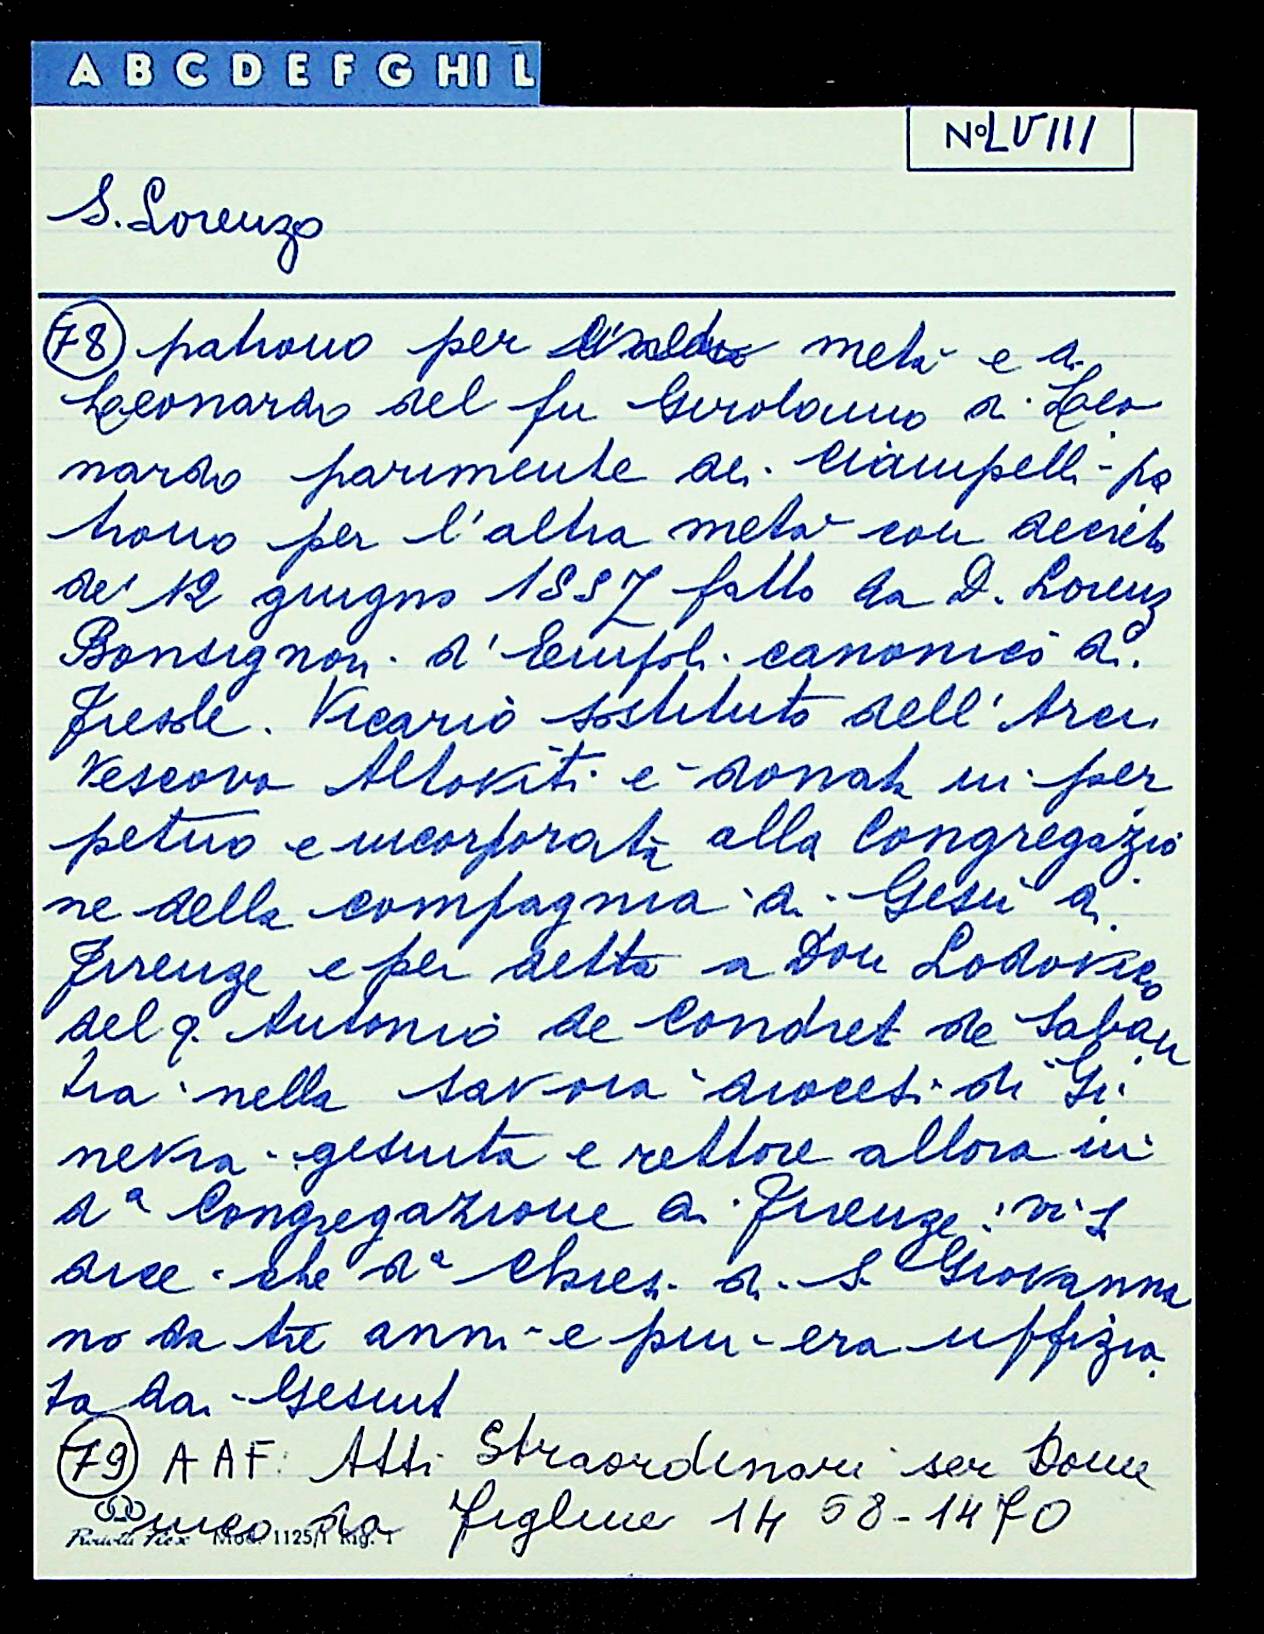 A B C D E F G HI L
No LVIII
S. Lorenzo
78 patrono per metà e di
Leonardo del fu Girolamo di Leo
nardo parimente dei Ciampelli - pa
trono per l'altra metà con decreto
del 12 giugno 1557 fatto da D. Lorenzo
Bonsignori d'Empoli canonico di
Fiesole. Vicario sostituto dell'Arci
vescovo Altoviti è donata in per
petuo e incorporata alla Congregazio
ne della compagnia di Gesù di
Firenze e per detta a Don Lodovico
del q. Antonio de Condret de
nella Savoia diocesi di Gi
nevra - gesuita e rettore allora in
da Congregazione di Firenze: vi s
dice che da Chiesa di S. Giovanni
no da tre anni - e più - era uffizia
ta dai Gesuit
79 AAF. Atti Straordinari ser Dome
nico da Figline 1458-1470
Mod. 1125/1 Rig. 1